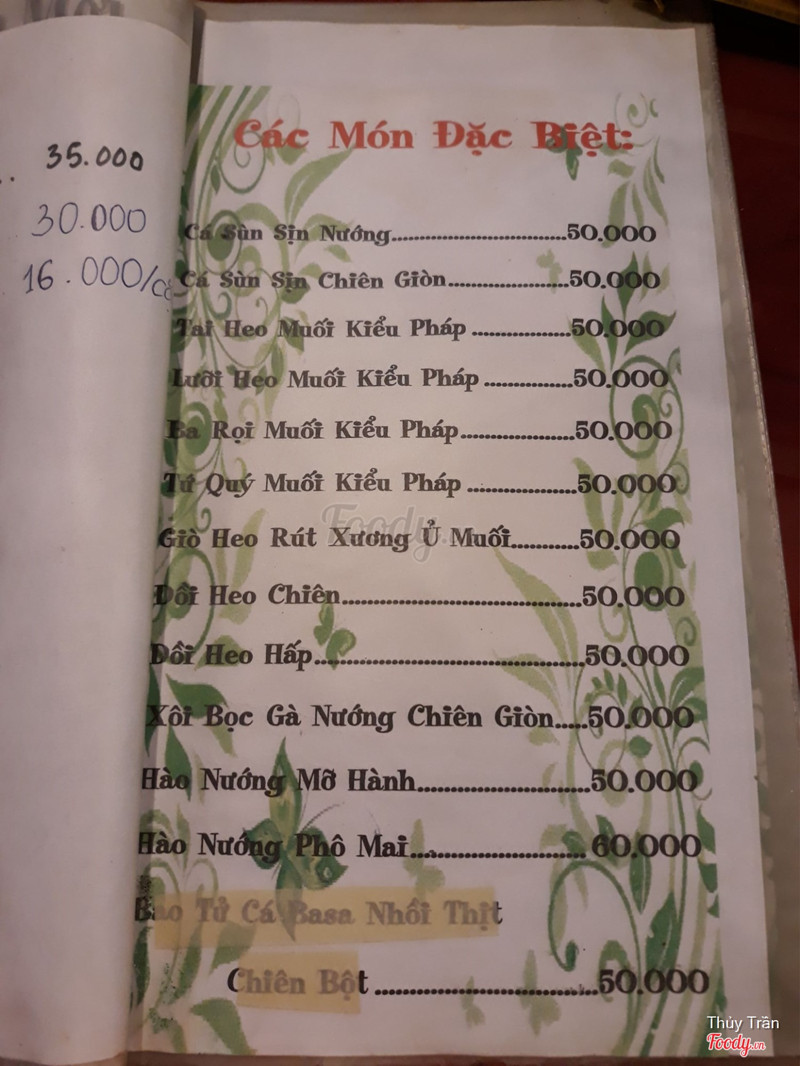 35.000
30.000
16.000/
Các Món Đặc Biệt:
Cá Sùn Sịn Nướng..............................50.000
Cá Sùn Sịn Chiên Giòn.....................50.000
Tai Heo Muối Kiểu Pháp .................50.000
Lưỡi Heo Muối Kiểu Pháp ...............50.000
Ba Rọi Muối Kiểu Pháp....................50.000
Tứ Quý Muối Kiểu Pháp ..................50.000
Giò Heo Rút Xương Ủ Muối...........50.000
Dồi Heo Chiên.....................................50.000
Dồi Heo Hấp.........................................50.000
Xôi Bọc Gà Nướng Chiên Giòn.....50.000
Hào Nướng Mỡ Hành..........................50.000
Hào Nướng Phô Mai.......................... 60.000
Bao Tử Cá Basa Nhồi Thịt
Chiên Bột ................................50.000
Foody.vn
Thủy Trần
Foody.vn